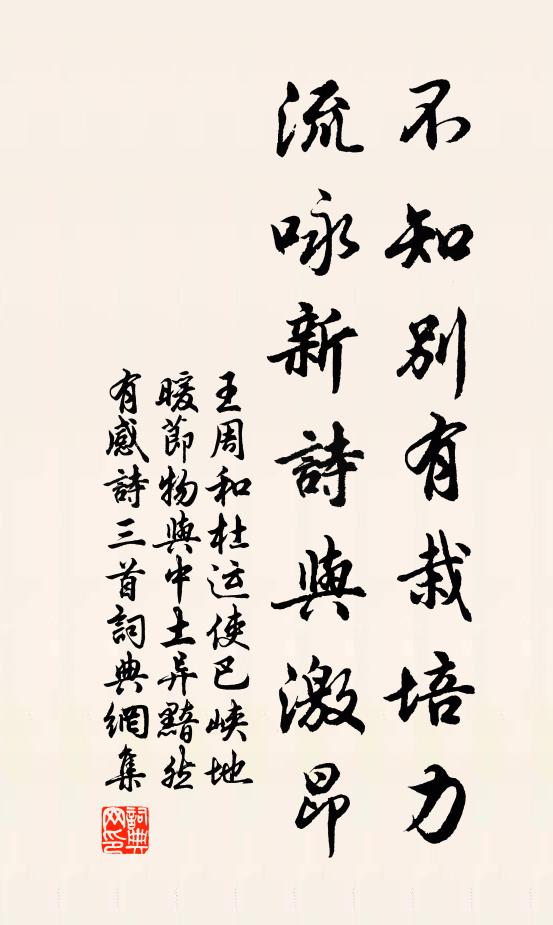 不知別有栽培力
流咏新詩與激昂
王周和杜运使巴峽地
暖節物與中土异黯然
有感詩三首詞典網集
詞典网印